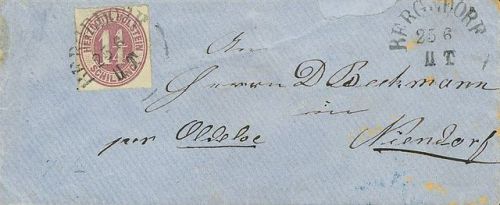 HERZOGTH. HOLSTEIN
1¼
SCHILLING
25 6
II T
BERGEDORF
25 6
II T
An
Herrn D Beckmann
in
per Oldesloe Niendorf